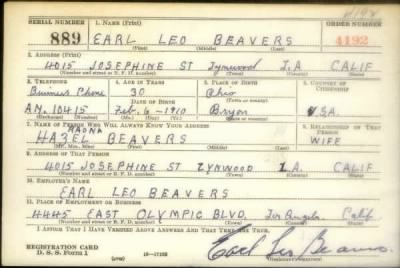 SERIAL NUMBER 1. NAME (Print) ORDER NUMBER
889 EARL LEO BEAVERS 4192
(First) (Middle) (Last)
2. ADDRESS (Print)
4015 JOSEPHINE ST Lynwood L.A CALIF
(Number and street or R. F. D. number) (Town) (County) (State)
3. TELEPHONE 4. AGE IN YEARS 5. PLACE OF BIRTH 6. COUNTRY OF CITIZENSHIP
Business Phone 30 Ohio
DATE OF BIRTH (Town or county)
AN. 10415 Feb. 6-1910 Bryon U.S.A.
(Exchange) (Number) (Mo.) (Day) (Yr.) (State or country)
7. NAME OF PERSON WHO WILL ALWAYS KNOW YOUR ADDRESS 8. RELATIONSHIP OF THAT PERSON
RAONA
HAZEL BEAVERS WIFF
(Mr., Mrs., Miss) (First) (Middle) (Last)
9. ADDRESS OF THAT PERSON
4015 JOSEPHINE ST LYNWOOD L.A. CALIF
(Number and street or R. F. D. number) (Town) (County) (State)
10. EMPLOYER'S NAME
EARL LEO BEAVERS
11. PLACE OF EMPLOYMENT OR BUSINESS
4445 EAST OLYMPIC BLVD. Los Angeles Calif
(Number and street or R. F. D. number) (Town) (County) (State)
I AFFIRM THAT I HAVE VERIFIED ABOVE ANSWERS AND THAT THEY ARE TRUE.
REGISTRATION CARD
D. S. S. Form 1 (over) 16-17105 Earl Leo Beavers
(Registrant's signature)